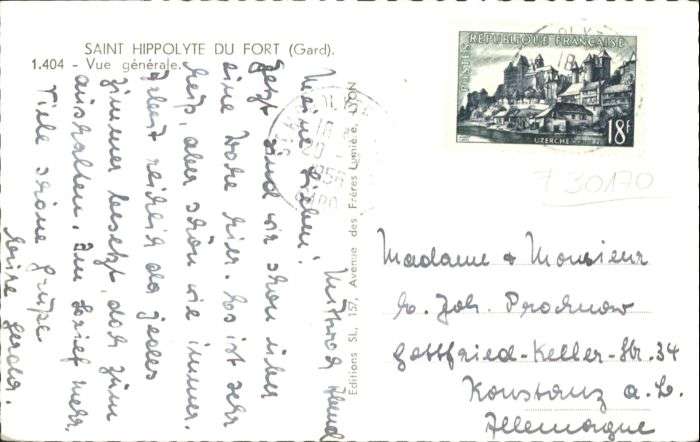 SAINT HIPPOLYTE DU FORT (Gard).
1.404 - Vue générale.
Mittwoch Abend
Meine Lieben!
Jetzt sind wir schon über
eine Woche hier. Es ist sehr
heiß, aber schön wie immer.
reichlich da jedes
Zimmer besetzt, doch zum
aushalten. Im Brief mehr.
Viele schöne Grüße
Editions SL, 157, Avenue des Frères Lumière, LYON
POSTES
REPUBLIQUE FRANÇAISE
UZERCHE
18F
7 30170
Madame & Monsieur
Joh. Prochnow
Gottfried-Keller-Str. 34
Konstanz a. B.
Allemagne